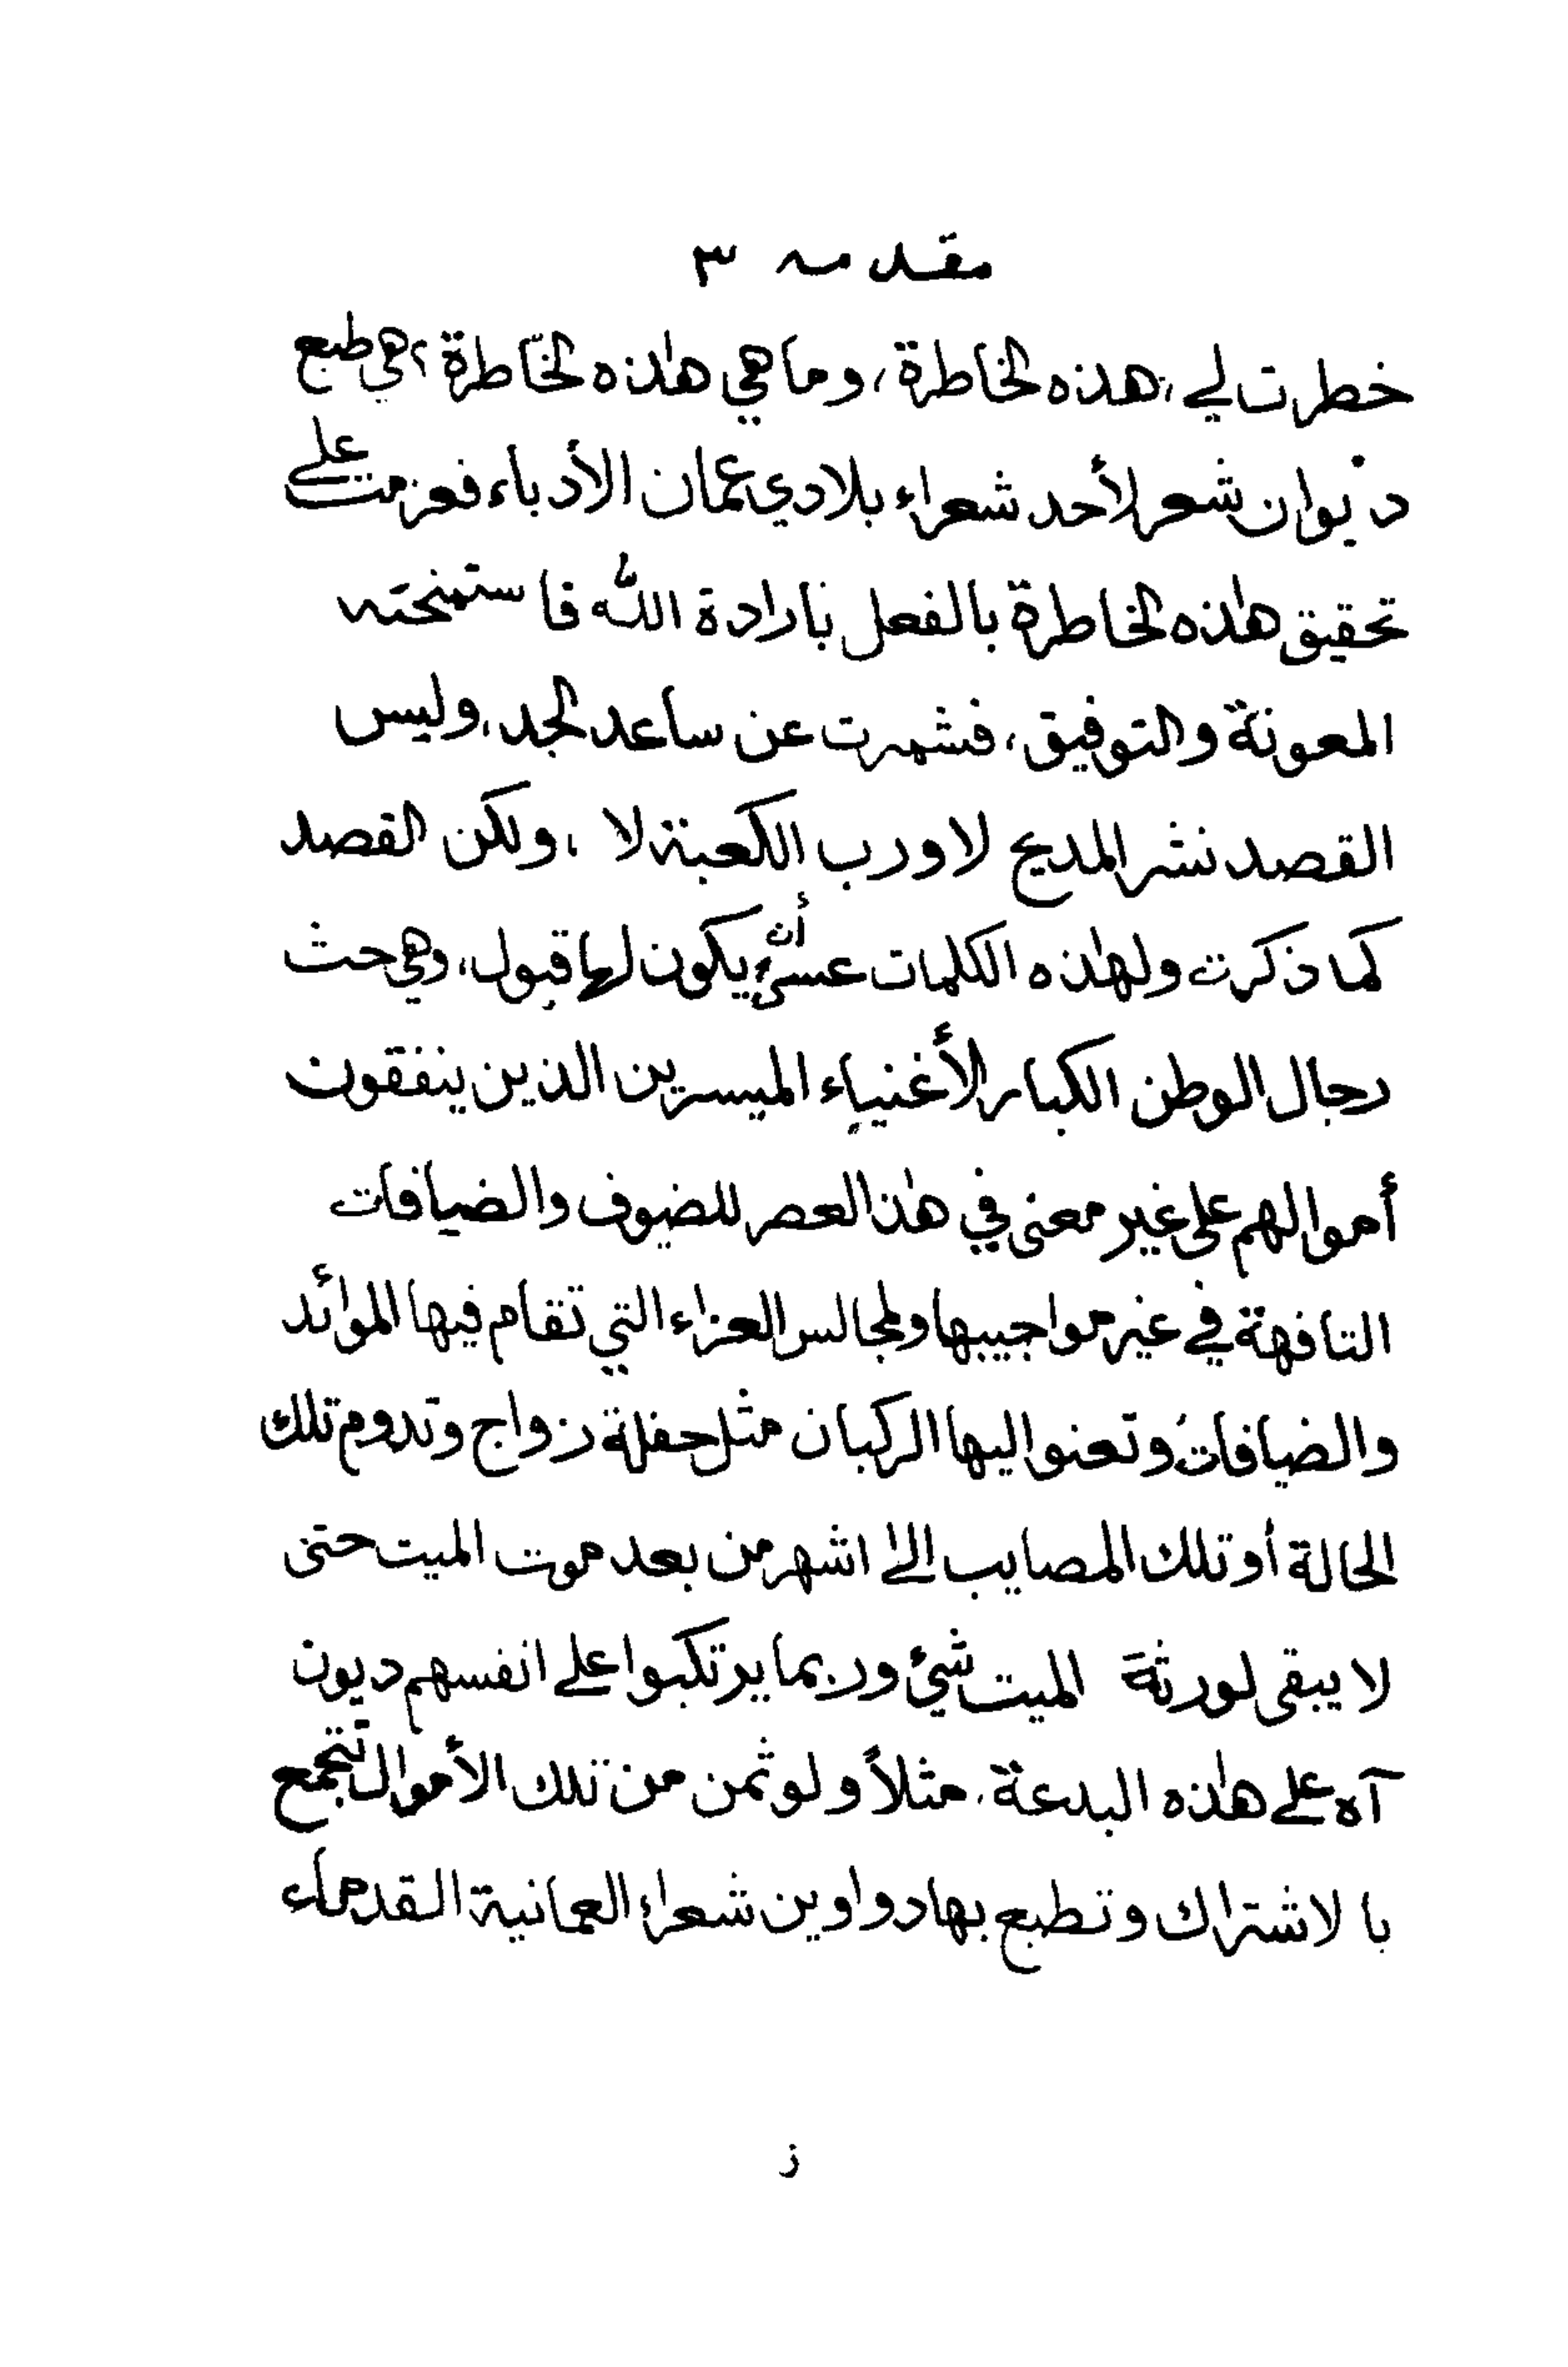 مقدمه ٣
خطرت لي، هذه الخاطرة، وما هي هٰذه الخّاطرة؟ هي طبع
ديوان شعر لأحد شعراء بلادي عمان الأدباء فعزمت على
تحقيق هٰذه الخاطرة بالفعل بارادة الله فاستمنحته
المعونة والتوفيق، فشمرت عن ساعد الجد، وليس
القصد نشر المديح لا ورب الكعبة لا، ولكن القصد
كما ذكرت ولهٰذه الكلمات عسىٰ أن يكون لها قبول، وهي حث
رجال الوطن الكبار الأغنياء الميسرين الذين ينفقون
أموالهم على غير معنى في هٰذا العصر للضيوف والضيافات
التافهة في غير مواجيبها ولمجالس العزاء التي تقام فيها الموائد
والضيافاتُ وتعنوا اليها الركبان مثل حفلة زواج وتدوم تلك
الحالة أو تلك المصايب الى اشهر من بعد موت الميت حتى
لا يبقى لورثة الميت شيئ وربما يرتكبوا على انفسهم ديون
آه على هٰذه البدعة، مثلاً ولو ثمن من تلك الأموال تتجمع
بالاشتراك وتطبع بها دواوين شعراء العمانية القدماء
ز